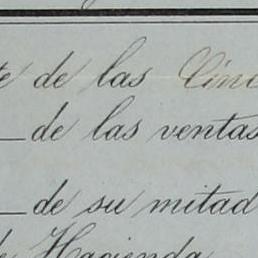 te de las Cinc
de las ventas
de su mitad
de Hacienda